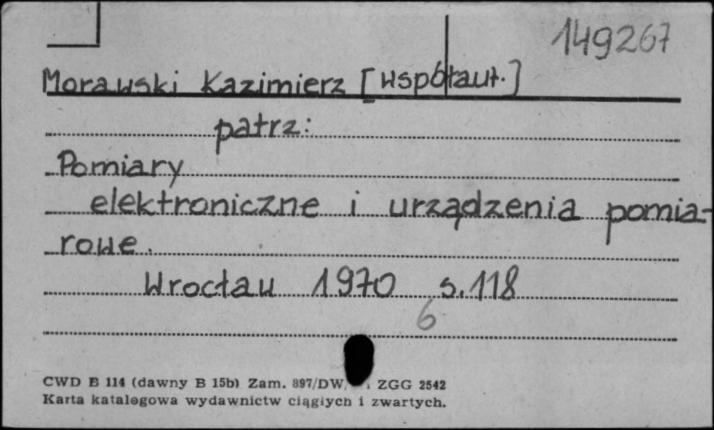 149267
Morawski Kazimierz [współaut.]
patrz:
Pomiary
elektroniczne i urządzenia pomia-
rowe.
Wrocław 1970 s. 118
6
CWD B 114 (dawny B 15b) Zam. 897/DW, ZGG 2542
Karta katalogowa wydawnictw ciągłych i zwartych.